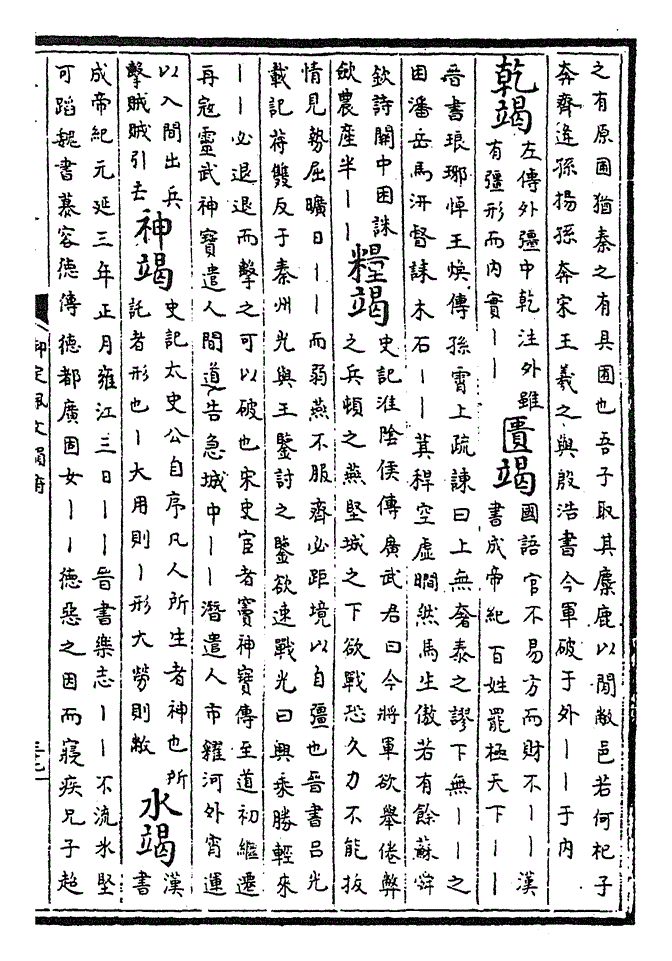 之有原圃猶秦之有具囿也吾子取其麋鹿以閒敝邑若何杞子
奔齊逄孫揚孫奔宋王羲之與殷浩書今軍破于外丨丨于内
乾竭左傳外彊中乾注外雖
有彊形而内實丨丨
匱竭國語官不易方而財不丨丨漢
書成帝紀百姓罷極天下丨丨
晉書琅琊悼王煥傳孫霄上疏諫曰上無奢泰之謬下無丨丨之
困潘岳馬汧督誄木石丨丨萁稈空虛瞷然馬生傲若有餘蘇舜
欽詩關中困誅
斂農産半丨丨
糧竭史記淮陰侯傳廣武君曰今將軍欲舉倦弊
之兵頓之燕堅城之下欲戰恐久力不能拔
情見勢屈曠日丨丨而弱燕不服齊必距境以自彊也晉書呂光
載記苻雙反于秦州光與王鑒討之鑒欲速戰光曰興乘勝輕來
丨丨必退退而擊之可以破也宋史宦者竇神寶傳至道初繼遷
再寇靈武神寶遣人間道告急城中丨丨潛遣人市糴河外宵運
以入間出兵
擊賊賊引去
神竭史記太史公自序凡人所生者神也所
託者形也丨大用則丨形大勞則敝
水竭漢
書
成帝紀元延三年正月雍江三日丨丨晉書樂志丨丨不流冰堅
可蹈魏書慕容德傳德都廣固女丨丨德惡之因而寢疾兄子超
御定佩文韻府